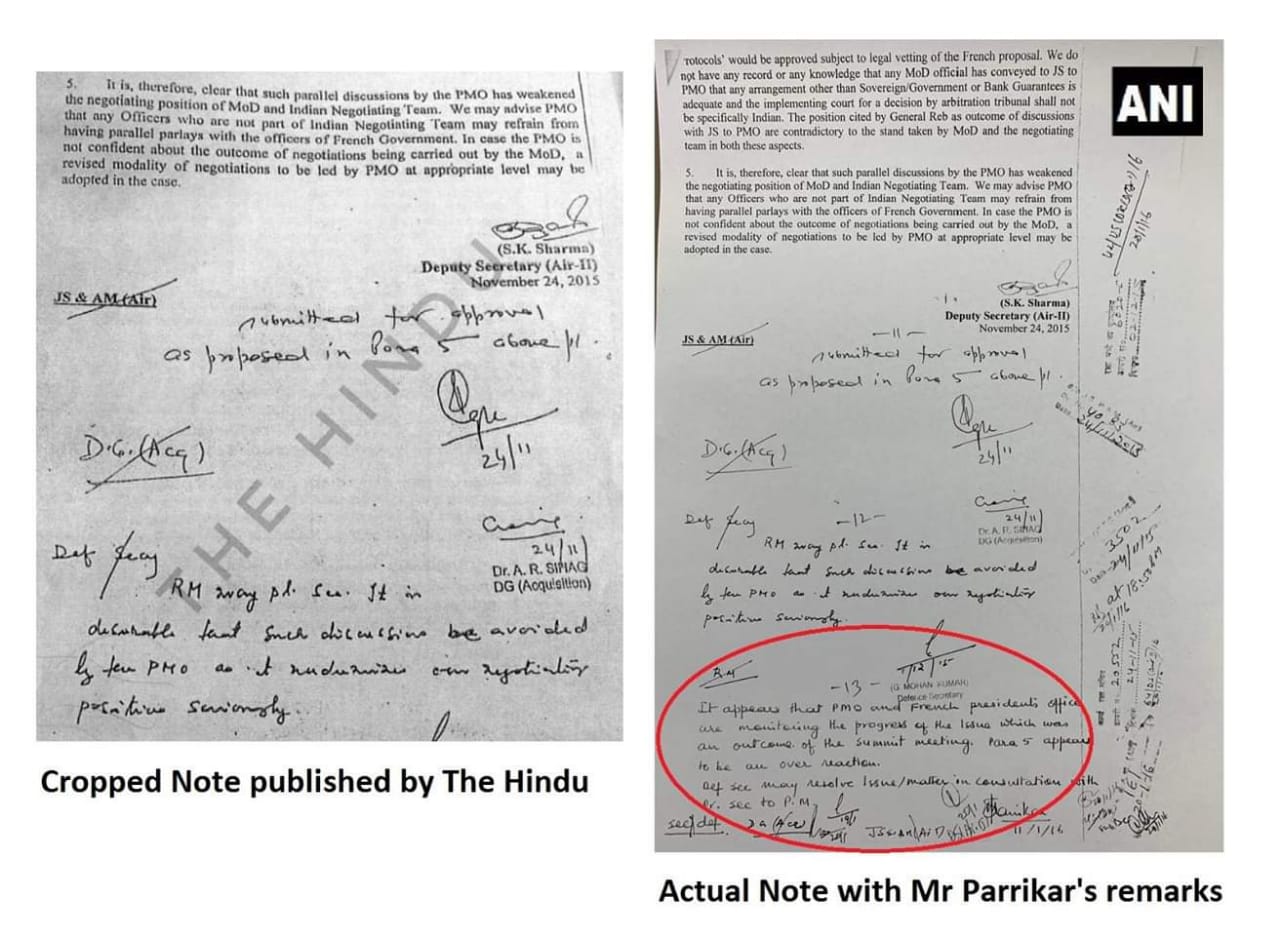 5. It is, therefore, clear that such parallel discussions by the PMO has weakened
the negotiating position of MoD and Indian Negotiating Team. We may advise PMO
that any Officers who are not part of Indian Negotiating Team may refrain from
having parallel parlays with the officers of French Government. In case the PMO is
not confident about the outcome of negotiations being carried out by the MoD, a
revised modality of negotiations to be led by PMO at appropriate level may be
adopted in the case.
(S.K. Sharma)
Deputy Secretary (Air-II)
November 24, 2015
JS & AM (Air)
submitted for approval
as proposed in Para 5 above pl.
24/11
D.G. (Acq)
24/11
Dr. A. R. SIHAG
DG (Acquisition)
Def Secy
RM may pl. see. It is
desirable that such discussions be avoided
by the PMO as it undermines our negotiating
position seriously.
THE HINDU
Cropped Note published by The Hindu
rotocols' would be approved subject to legal vetting of the French proposal. We do
not have any record or any knowledge that any MoD official has conveyed to JS to
PMO that any arrangement other than Sovereign/Government or Bank Guarantees is
adequate and the implementing court for a decision by arbitration tribunal shall not
be specifically Indian. The position cited by General Reb as outcome of discussions
with JS to PMO are contradictory to the stand taken by MoD and the negotiating
team in both these aspects.
5. It is, therefore, clear that such parallel discussions by the PMO has weakened
the negotiating position of MoD and Indian Negotiating Team. We may advise PMO
that any Officers who are not part of Indian Negotiating Team may refrain from
having parallel parlays with the officers of French Government. In case the PMO is
not confident about the outcome of negotiations being carried out by the MoD, a
revised modality of negotiations to be led by PMO at appropriate level may be
adopted in the case.
(S.K. Sharma)
Deputy Secretary (Air-II)
November 24, 2015
JS & AM (Air)
-11-
submitted for approval
as proposed in Para 5 above pl.
24/11
D.G. (Acq)
24/11
Dr. A. R. SIHAG
DG (Acquisition)
Def Secy
-12-
RM may pl. see. It is
desirable that such discussions be avoided
by the PMO as it undermines our negotiating
position seriously.
1/12/15
(G. MOHAN KUMAR)
Defence Secretary
RM
-13-
It appears that PMO and French presidents office
are monitoring the progress of the issue which was
an outcome of the summit meeting. Para 5 appears
to be an over reaction.
Def sec may resolve issue/matter in consultation with
Pr. sec to P.M.
11/1/16
ANI
Actual Note with Mr Parrikar's remarks